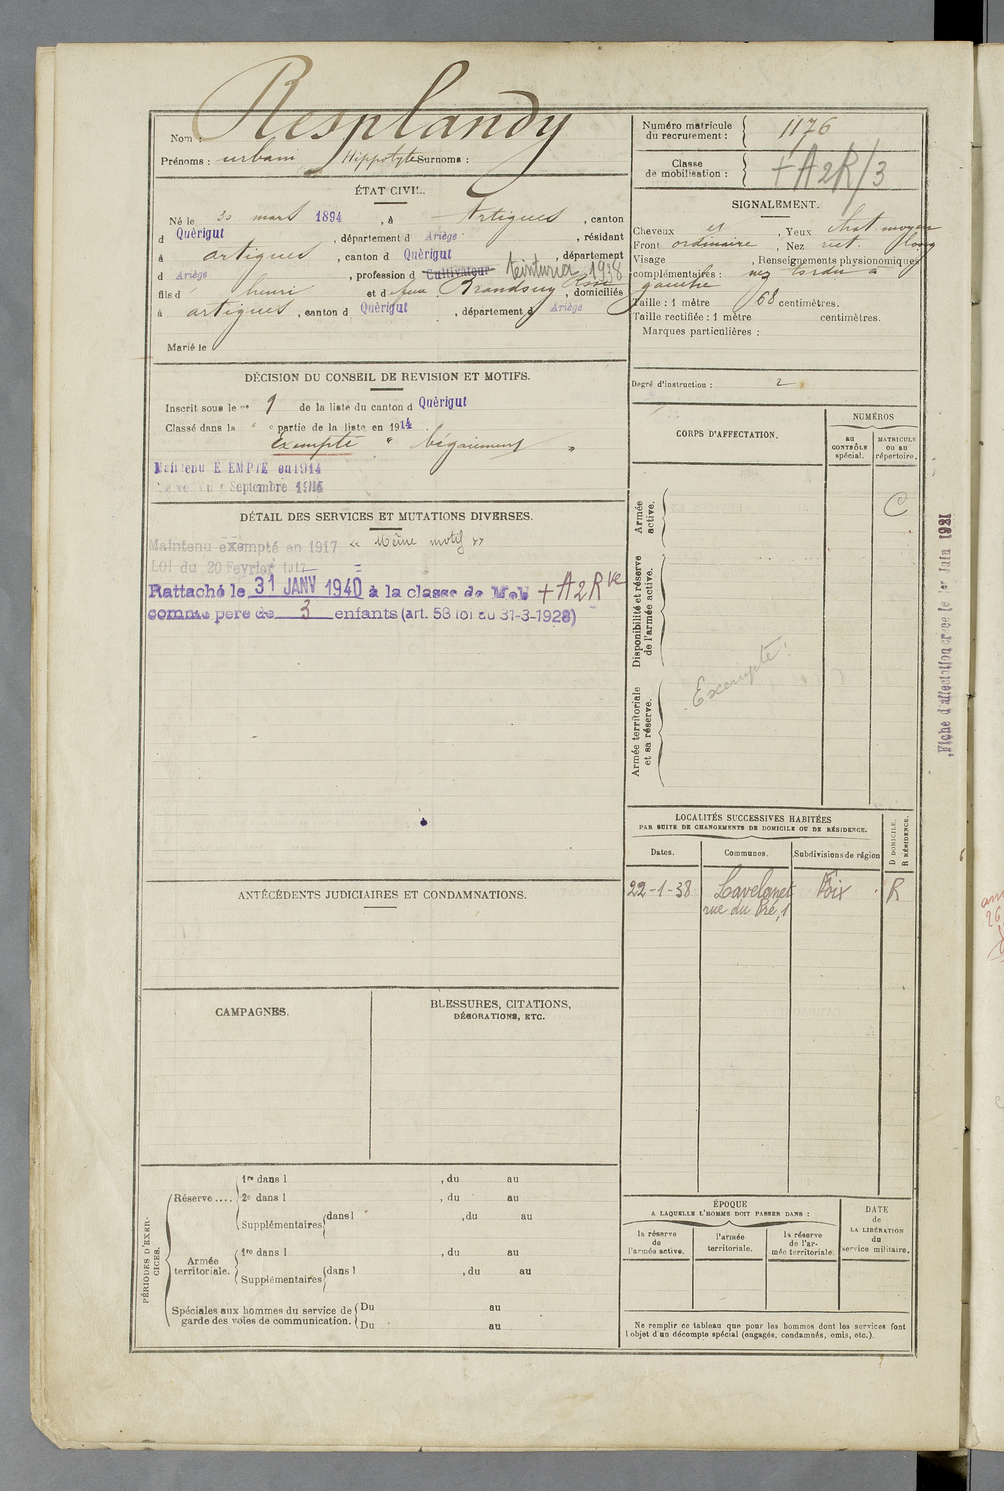 Nom : Resplandy
Prénoms : urbain Hippolyte Surnoms :
ÉTAT CIVIL.
Né le 30 mars 1894, à Artigues, canton
d Quérigut, département d Ariège, résidant
à artigues, canton d Quérigut, département
d Ariège, profession d Cultivateur teinturier 1938
fils d henri et d feue Rose, domiciliés
à artigues, canton d Quérigut, département d Ariège
Marié le
DÉCISION DU CONSEIL DE REVISION ET MOTIFS.
Inscrit sous le n° 9 de la liste du canton d Quérigut
Classé dans la " e partie de la liste en 1914.
Exempté " bégaiement "
Maintenu EXEMPTÉ en 1914
Septembre 1915
DÉTAIL DES SERVICES ET MUTATIONS DIVERSES.
Maintenu exempté en 1917 « Même motif »
LOI du 20 Fevrier 1917
Rattaché le 31 JANV 1940 à la classe de Mob + A2Rve
comme père de 3 enfants (art. 58 loi du 31-3-1928)
ANTÉCÉDENTS JUDICIAIRES ET CONDAMNATIONS.
CAMPAGNES.
BLESSURES, CITATIONS,
DÉCORATIONS, ETC.
PÉRIODES D'EXERCICES.
Réserve....
1re dans l , du au
2e dans l , du au
Supplémentaires dans l , du au
Armée
territoriale.
1re dans l , du au
Supplémentaires dans l , du au
Spéciales aux hommes du service de
garde des voies de communication.
Du au
Du au
Numéro matricule
du recrutement : 1176
Classe
de mobilisation : + A2R/3
SIGNALEMENT.
Cheveux et, Yeux chat. moyen
Front ordinaire, Nez rect. long
Visage , Renseignements physionomiques
complémentaires : nez tordu à
gauche
Taille : 1 mètre 68 centimètres.
Taille rectifiée : 1 mètre centimètres.
Marques particulières :
Degré d'instruction : 2
CORPS D'AFFECTATION.
NUMÉROS
au
CONTRÔLE
spécial.
MATRICULE
ou au
répertoire.
Armée
active.
C
Disponibilité et réserve
de l'armée active.
Exempté !
Armée territoriale
et sa réserve.
Fiche d'affectation créée le 1er Juin 1921
LOCALITÉS SUCCESSIVES HABITÉES
PAR SUITE DE CHANGEMENTS DE DOMICILE OU DE RÉSIDENCE.
D DOMICILE.
R RÉSIDENCE.
Dates. Communes. Subdivisions de région
22-1-38 Lavelanet Foix R
rue du Pré, 1
ÉPOQUE
A LAQUELLE L'HOMME DOIT PASSER DANS :
la réserve
de
l'armée active.
l'armée
territoriale.
la réserve
de l'ar-
mée territoriale.
DATE
de
LA LIBÉRATION
du
service militaire.
Ne remplir ce tableau que pour les hommes dont les services font
l'objet d'un décompte spécial (engagés, condamnés, omis, etc.).